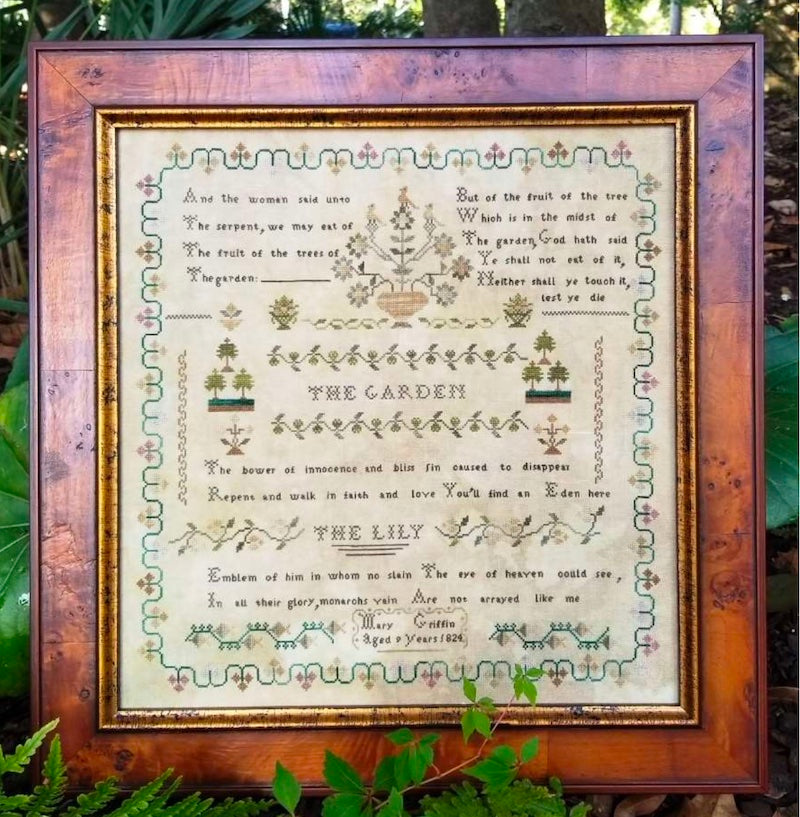 And the woman said unto
The serpent, we may eat of
The fruit of the trees of
The garden:
But of the fruit of the tree
Which is in the midst of
The garden, God hath said
Ye shall not eat of it,
Neither shall ye touch it,
lest ye die
THE GARDEN
The bower of innocence and bliss Sin caused to disappear
Repent and walk in faith and love You'll find an Eden here
THE LILY
Emblem of him in whom no stain The eye of heaven could see,
In all their glory, monarchs vain Are not arrayed like me
Mary Griffin
Aged 9 Years 1824